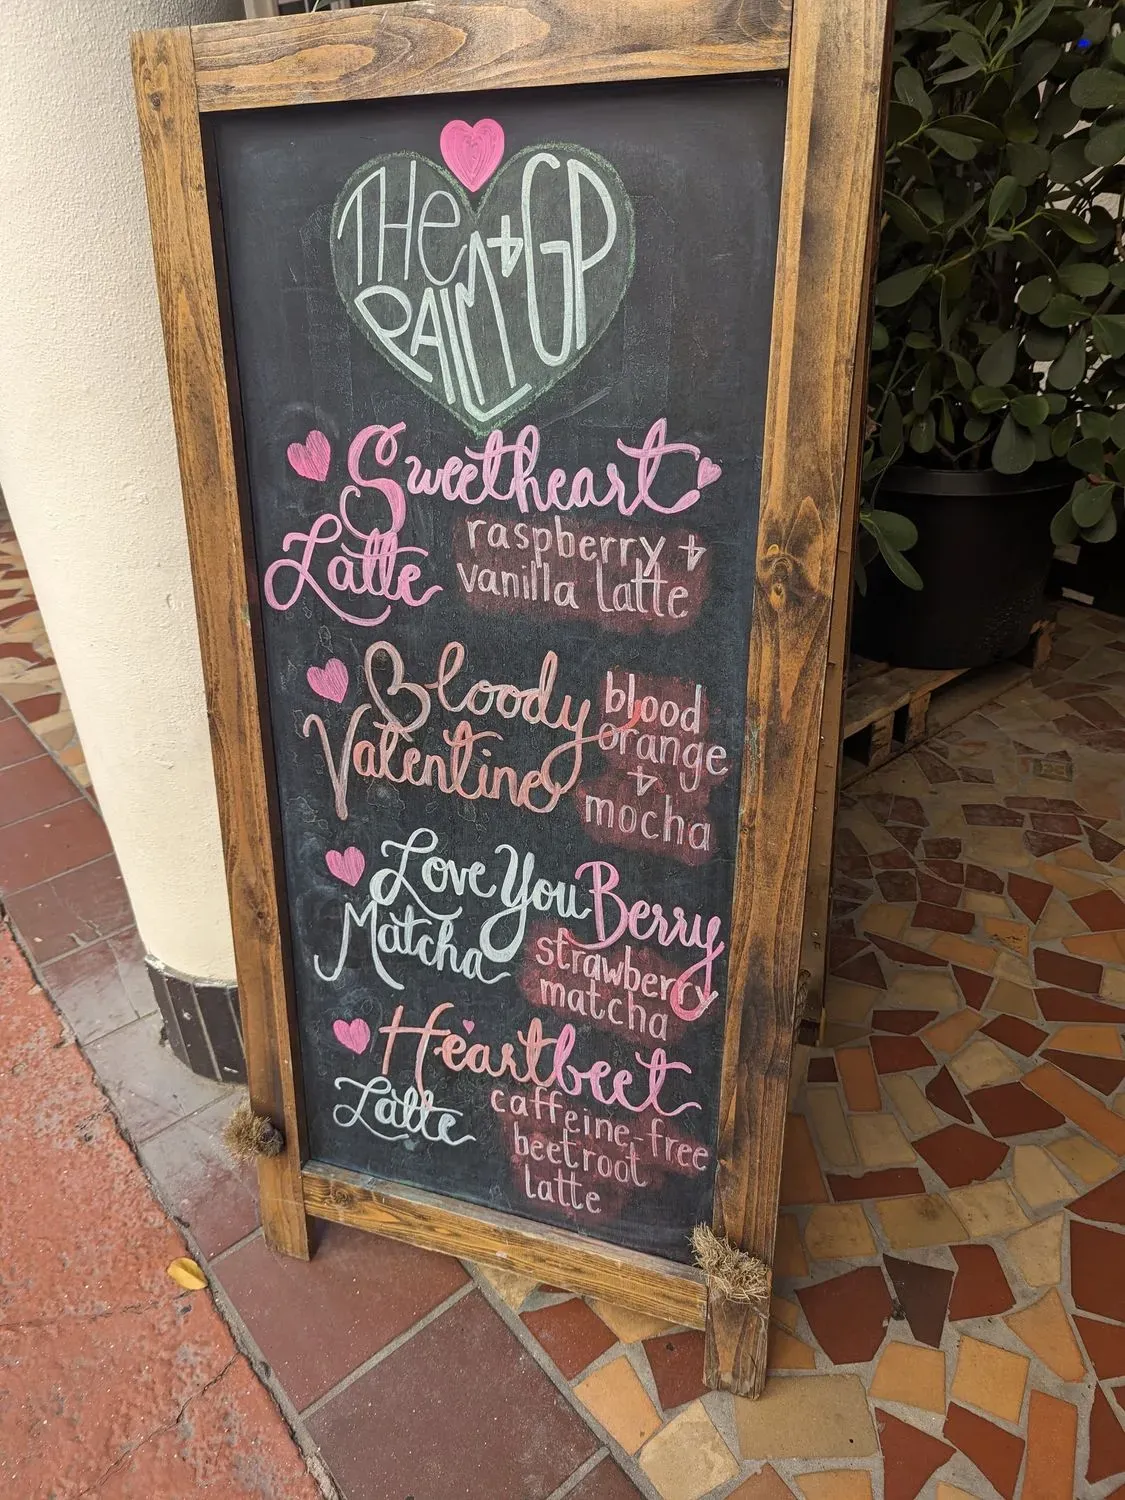 THe
PALM + GP
Sweetheart
Latte
raspberry +
vanilla latte
Bloody
Valentine
blood
orange
+
mocha
Love You Berry
Matcha
strawberry
matcha
Heartbeet
Latte
caffeine-free
beetroot
latte